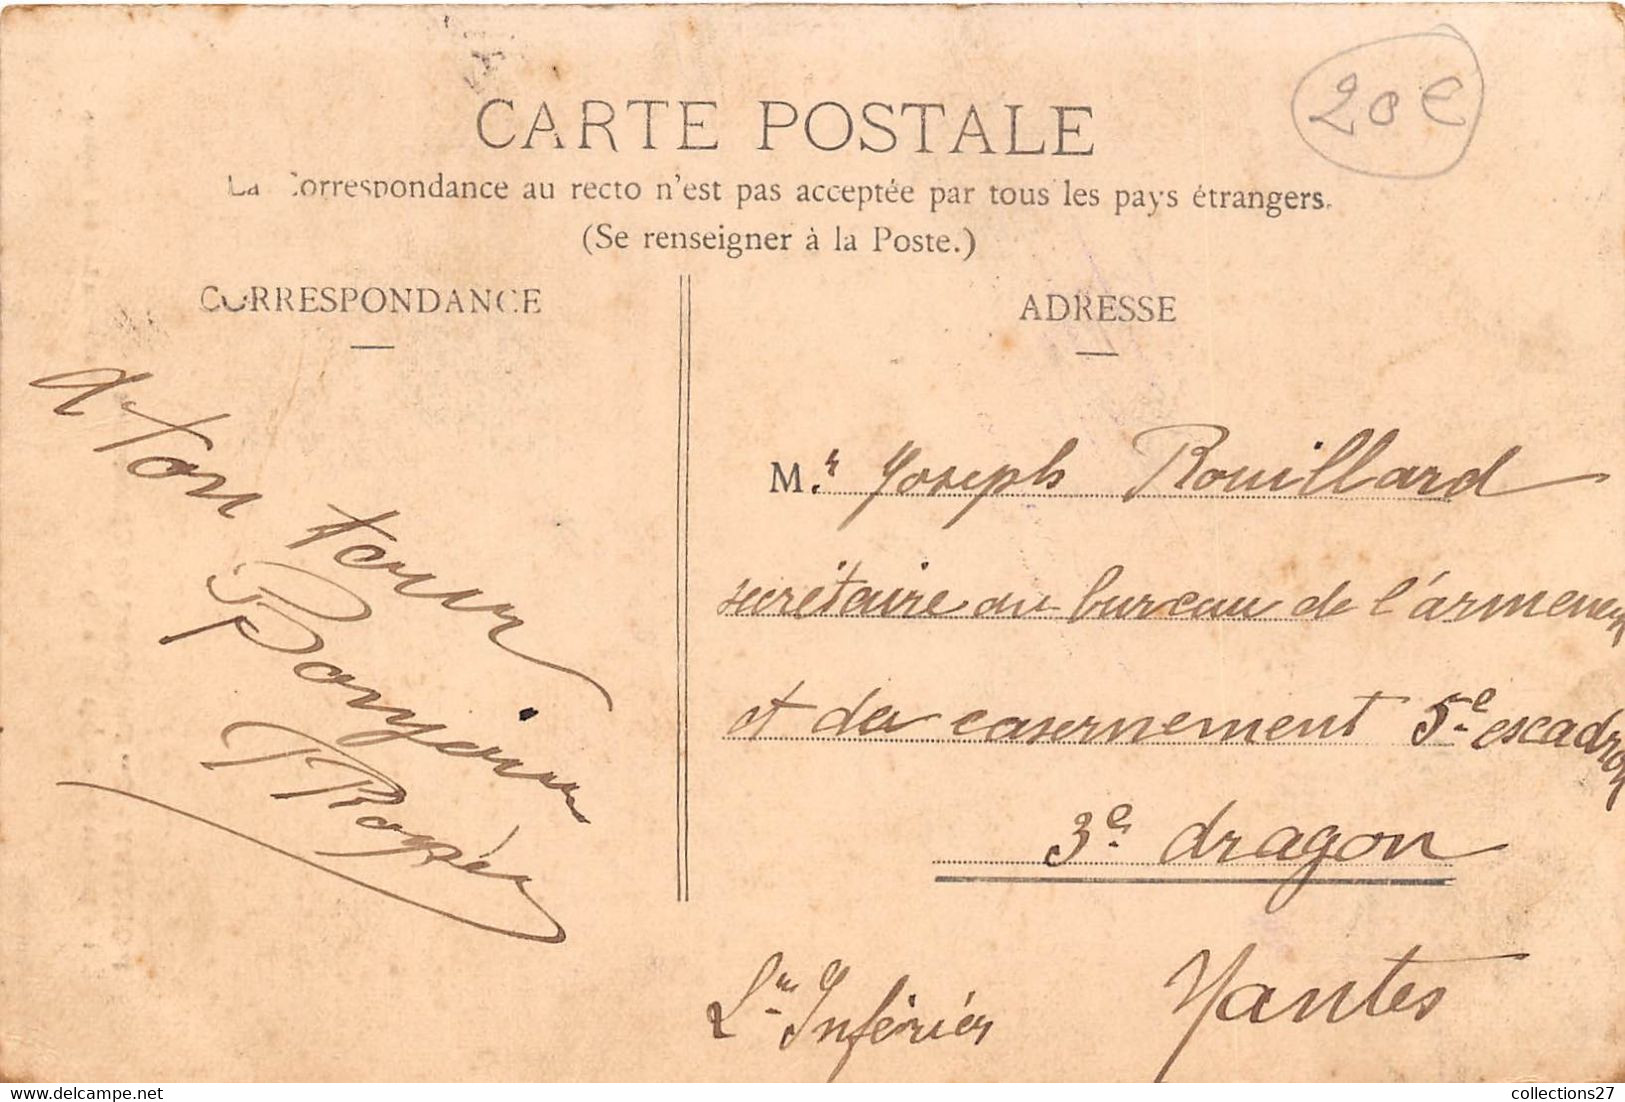 20€
CARTE POSTALE
La Correspondance au recto n'est pas acceptée par tous les pays étrangers.
(Se renseigner à la Poste.)
CORRESPONDANCE
A ton
tour
Bonjour
ADRESSE
Mr Joseph Rouillard
secrétaire au bureau de l'armement
et du casernement 5e escadron
3e dragon
Nantes
Lre Inférie
collections27